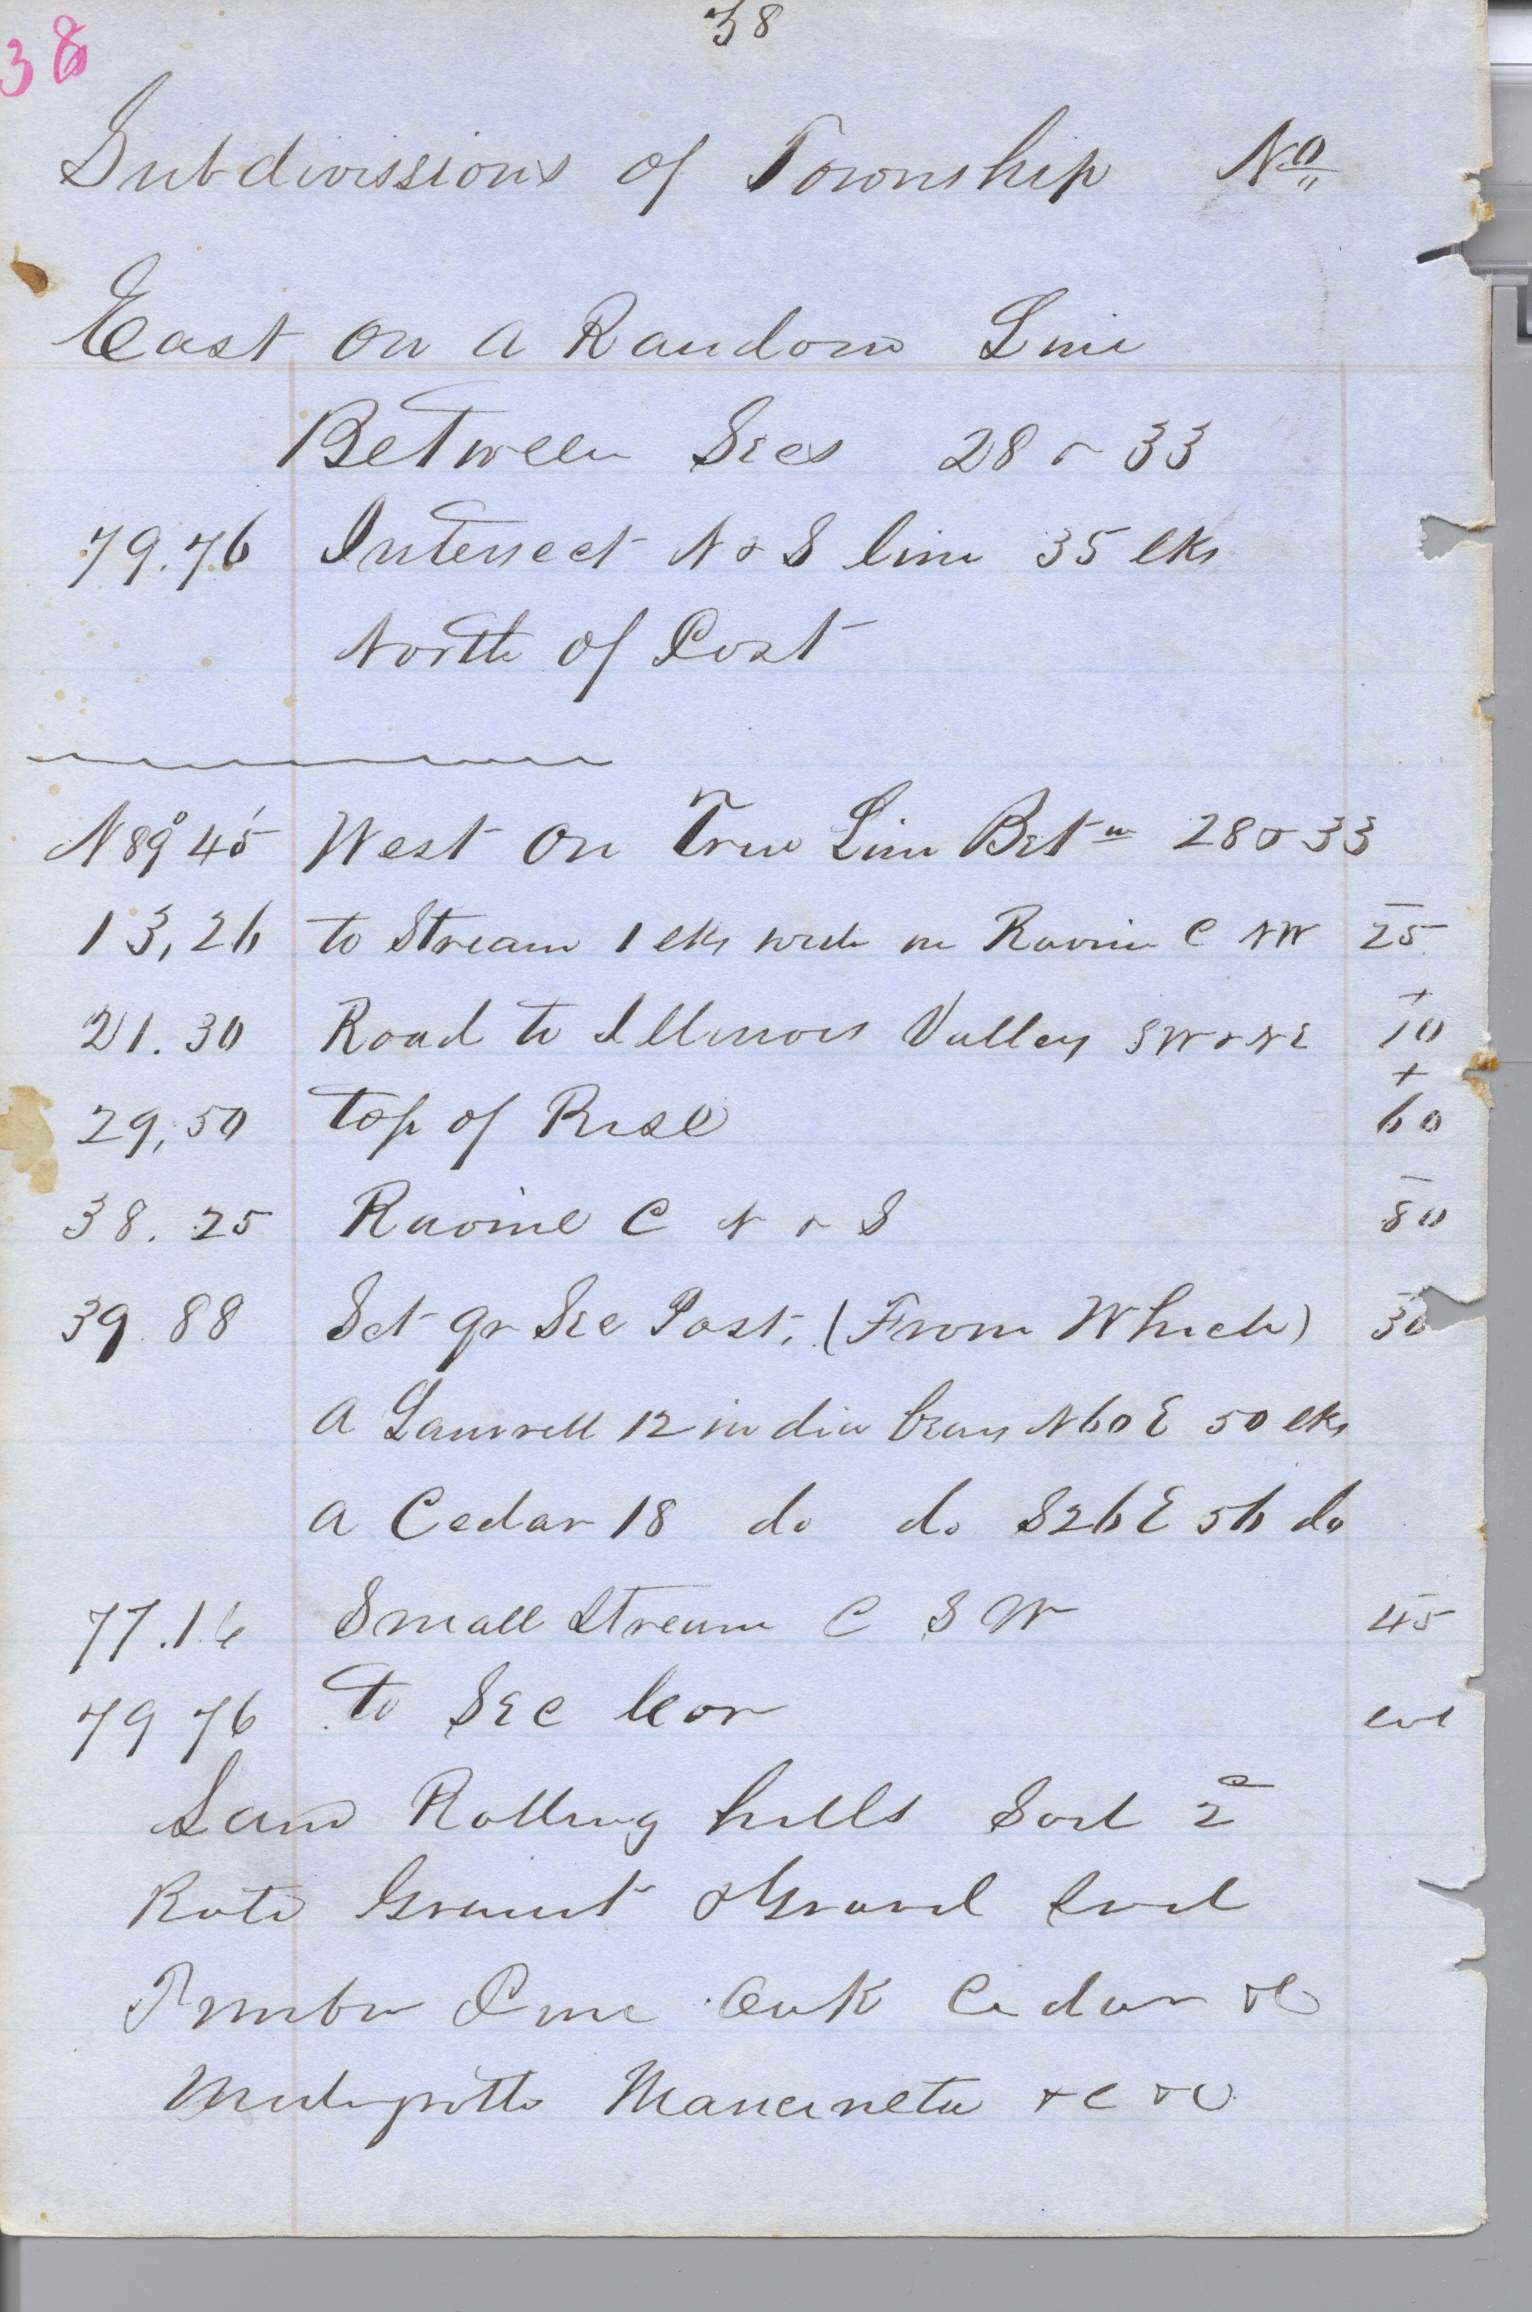 38
38
Subdivissions of Township No
East on a Random Line
Between Secs 28 & 33
79.76 Intersect N & S line 35 lks
North of Post
N 89° 45' West on True Line Betw 28 & 33
13,26 to Stream 1 lks wide in Ravine C NW - 25
21.30 Road to Illinois Valley SW & NE + 10
29,50 top of Rise + 60
38.25 Ravine C N & S - 80
39 88 Set qr Sec Post, (From Which) 30
a Laurell 12 in dia bears N60E 50 lks
a Cedar 18 do do S26E 56 do
77.16 Small Stream C SW - 45
79 76 to Sec Cor
Land Rolling hills Soil 2
Rate Granit & Gravel Soil
Timber Pine Oak Cedar &C
Mancineta &C &C